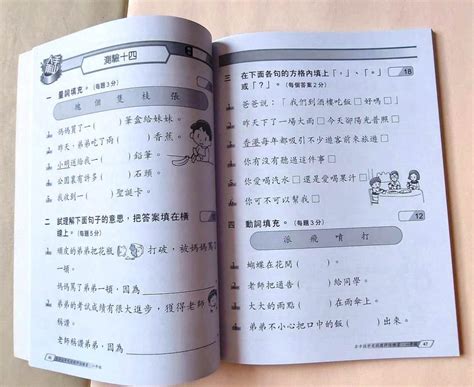 測驗十四
一 量詞填充。（每題3分）
塊 個 隻 枝 張
媽媽買了一（　）筆盒給妹妹。
昨天，弟弟吃了兩（　）香蕉。
小明送給我一（　）鉛筆。
公園裏有許多（　）石頭。
我收到一（　）聖誕卡。
二 試理解下面句子的意思，把答案填在橫
線上。（每題5分）
頑皮的弟弟把花瓶打破，被媽媽罵了
一頓。
媽媽罵了弟弟一頓，因為
。
弟弟的考試成績有很大進步，獲得老師
稱讚。
老師稱讚弟弟，因為
。
三 在下面各句的方格內填上「，」、「。」
或「？」。（每個答案2分）
18
爸爸說：「我們到酒樓吃飯□好嗎□」
昨天下了一場大雨□今天卻陽光普照□
香港每年都吸引不少遊客前來旅遊□
你有沒有聽過這件事□
你愛喝汽水□還是愛喝果汁□
你可以幫我嗎□
四 動詞填充。（每題3分）
12
派 飛 噴 打
蝴蝶在花間（　）。
老師把通告（　）給同學。
大大的雨點（　）在雨傘上。
弟弟不小心把口中的飯（　）出來。
47